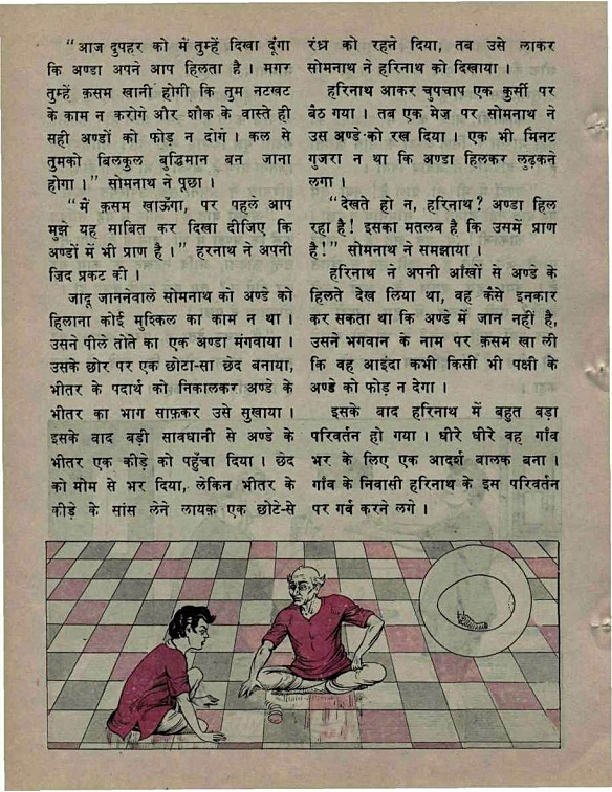 “आज दुपहर को मैं तुम्हें दिखा दूंगा
कि अण्डा अपने आप हिलता है । मगर
तुम्हें क़सम खानी होगी कि तुम नटखट
के काम न करोगे और शौक के वास्ते ही
सही अण्डों को फोड़ न दोगे । कल से
तुमको बिलकुल बुद्धिमान बन जाना
होगा ।” सोमनाथ ने पूछा ।
“मैं क़सम खाऊँगा, पर पहले आप
मुझे यह साबित कर दिखा दीजिए कि
अण्डों में भी प्राण है ।” हरनाथ ने अपनी
ज़िद प्रकट की ।
जादू जाननेवाले सोमनाथ को अण्डे को
हिलाना कोई मुश्किल का काम न था ।
उसने पीले तोते का एक अण्डा मंगवाया ।
उसके छोर पर एक छोटा-सा छेद बनाया,
भीतर के पदार्थ को निकालकर अण्डे के
भीतर का भाग साफ़कर उसे सुखाया ।
इसके बाद बड़ी सावधानी से अण्डे के
भीतर एक कीड़े को पहुँचा दिया । छेद
को मोम से भर दिया, लेकिन भीतर के
कीड़े के सांस लेने लायक़ एक छोटे-से
रंध्र को रहने दिया, तब उसे लाकर
सोमनाथ ने हरिनाथ को दिखाया ।
हरिनाथ आकर चुपचाप एक कुर्सी पर
बैठ गया । तब एक मेज़ पर सोमनाथ ने
उस अण्डे को रख दिया । एक भी मिनट
गुजरा न था कि अण्डा हिलकर लुढ़कने
लगा ।
“देखते हो न, हरिनाथ? अण्डा हिल
रहा है! इसका मतलब है कि उसमें प्राण
है!” सोमनाथ ने समझाया ।
हरिनाथ ने अपनी आंखों से अण्डे के
हिलते देख लिया था, वह कैसे इनकार
कर सकता था कि अण्डे में जान नहीं है,
उसने भगवान के नाम पर क़सम खा ली
कि वह आइंदा कभी किसी भी पक्षी के
अण्डे को फोड़ न देगा ।
इसके बाद हरिनाथ में बहुत बड़ा
परिवर्तन हो गया । धीरे धीरे वह गाँव
भर के लिए एक आदर्श बालक बना ।
गाँव के निवासी हरिनाथ के इस परिवर्तन
पर गर्व करने लगे ।